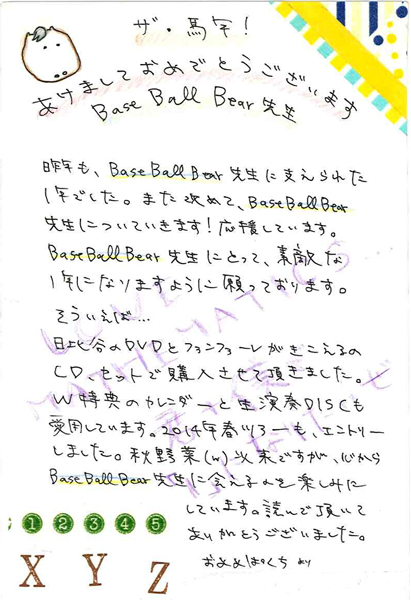 ザ・馬年!
あけましておめでとうございます
Base Ball Bear 先生
昨年も、Base Ball Bear 先生に支えられた
1年でした。また改めて、Base Ball Bear
先生についていきます!応援しています。
Base Ball Bear 先生にとって、素敵な
1年になりますように願っております。
そういえば…
日比谷のDVDとファンファーレがきこえるの
CD、セットで購入させて頂きました。
W特典のカレンダーと生演奏DISCも
愛用しています。2014年春ツアーも、エントリー
しました。秋野菜(w)以来ですが、心から
Base Ball Bear 先生に会えるのを楽しみに
しています。読んで頂いて
ありがとうございました。
およめぱくちより
LOVE
MATHEMATICS
1 2 3 4 5
X Y Z